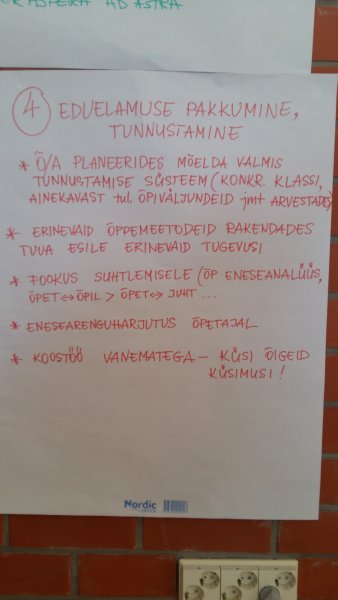 AD ASTRA
4 EDUELAMUSE PAKKUMINE,
TUNNUSTAMINE
* Õ/A PLANEERIDES MÕELDA VALMIS
TUNNUSTAMISE SÜSTEEM (KONKR. KLASSI,
AINEKAVAST tul. ÕPIVÄLJUNDEID jmt ARVESTADES)
* ERINEVAID ÕPPEMEETODEID RAKENDADES
TUUA ESILE ERINEVAID TUGEVUSI
* FOOKUS SUHTLEMISELE (ÕP ENESEANALÜÜS,
ÕPET ↔ ÕPIL > ÕPET ↔ JUHT ...
* ENESEARENGUHARJUTUS ÕPETAJAL
* KOOSTÖÖ VANEMATEGA – KÜSI ÕIGEID
KÜSIMUSI!
Nordic